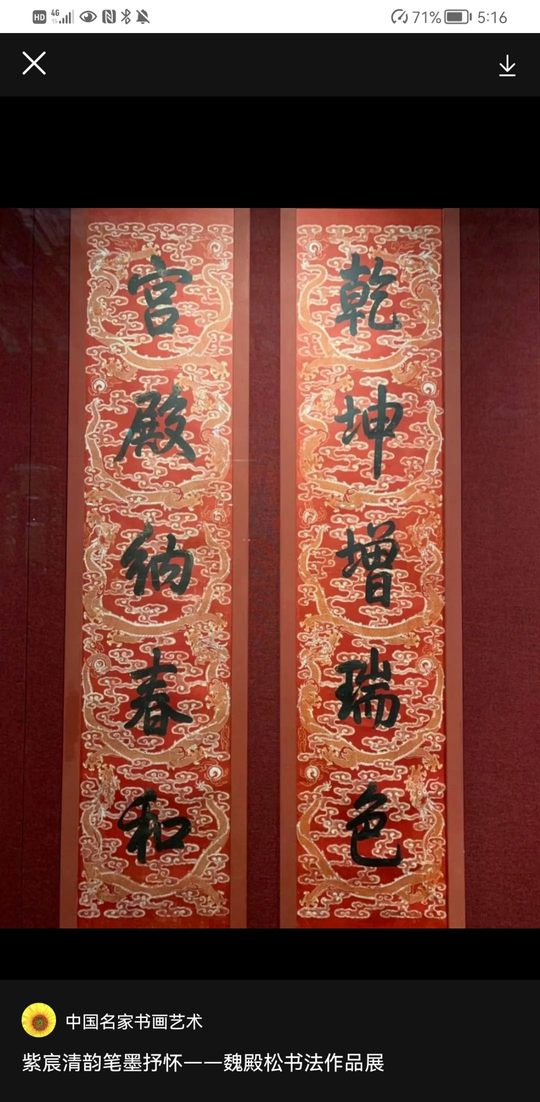 HD 4G 71% 5:16
乾坤增瑞色
宫殿纳春和
中国名家书画艺术
紫宸清韵笔墨抒怀一一魏殿松书法作品展